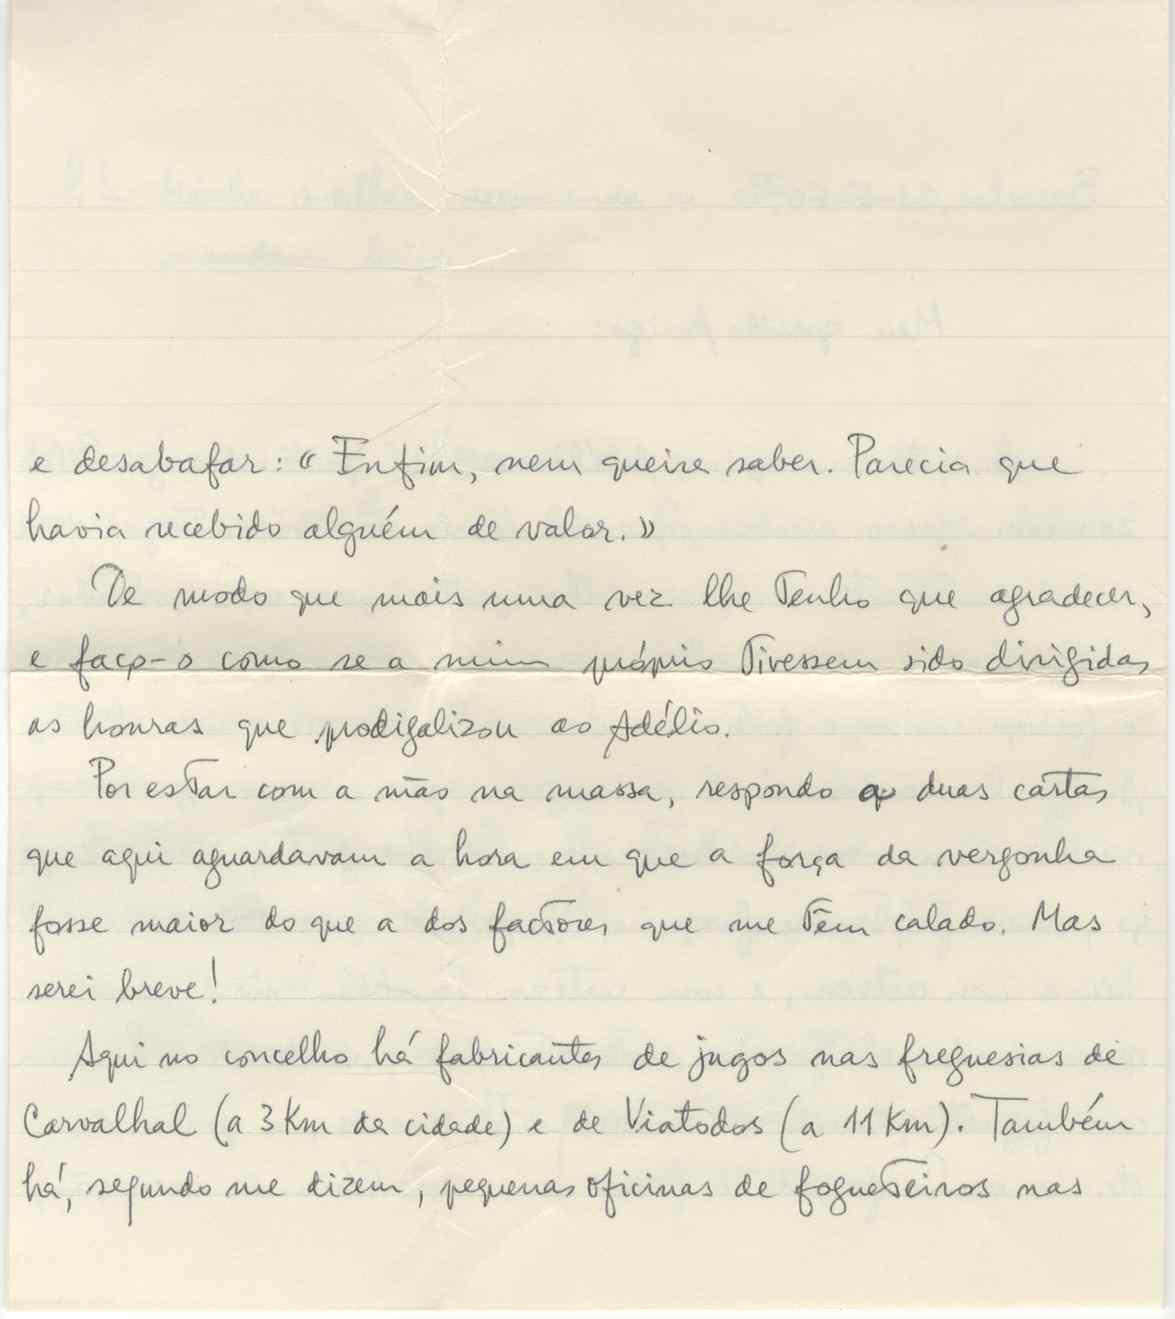 e desabafar: « Enfim, nem queira saber. Parecia que
havia recebido alguém de valor.»
De modo que mais uma vez lhe tenho que agradecer,
e faço-o como se a mim próprio tivessem sido dirigidas
as honras que prodigalizou ao Adélio.
Por estar com a mão na massa, respondo a duas cartas
que aqui aguardavam a hora em que a força da vergonha
fosse maior do que a dos factores que me têm calado. Mas
serei breve!
Aqui no concelho há fabricantes de jugos nas freguesias de
Carvalhal (a 3 Km da cidade) e de Viatodos (a 11 Km). Também
há, segundo me dizem, pequenas oficinas de fogueteiros nas